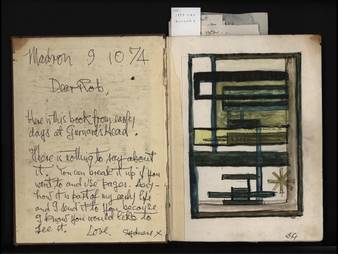 Madron 9 10 74
Dear Rob,
Here is this book from early
days at Gurnard's Head.
There is nothing to say about
it. You can break it up if you
want to and use pages. Any-
how it is part of my early life
and I send it to you because
I know you would like to
see it. Love